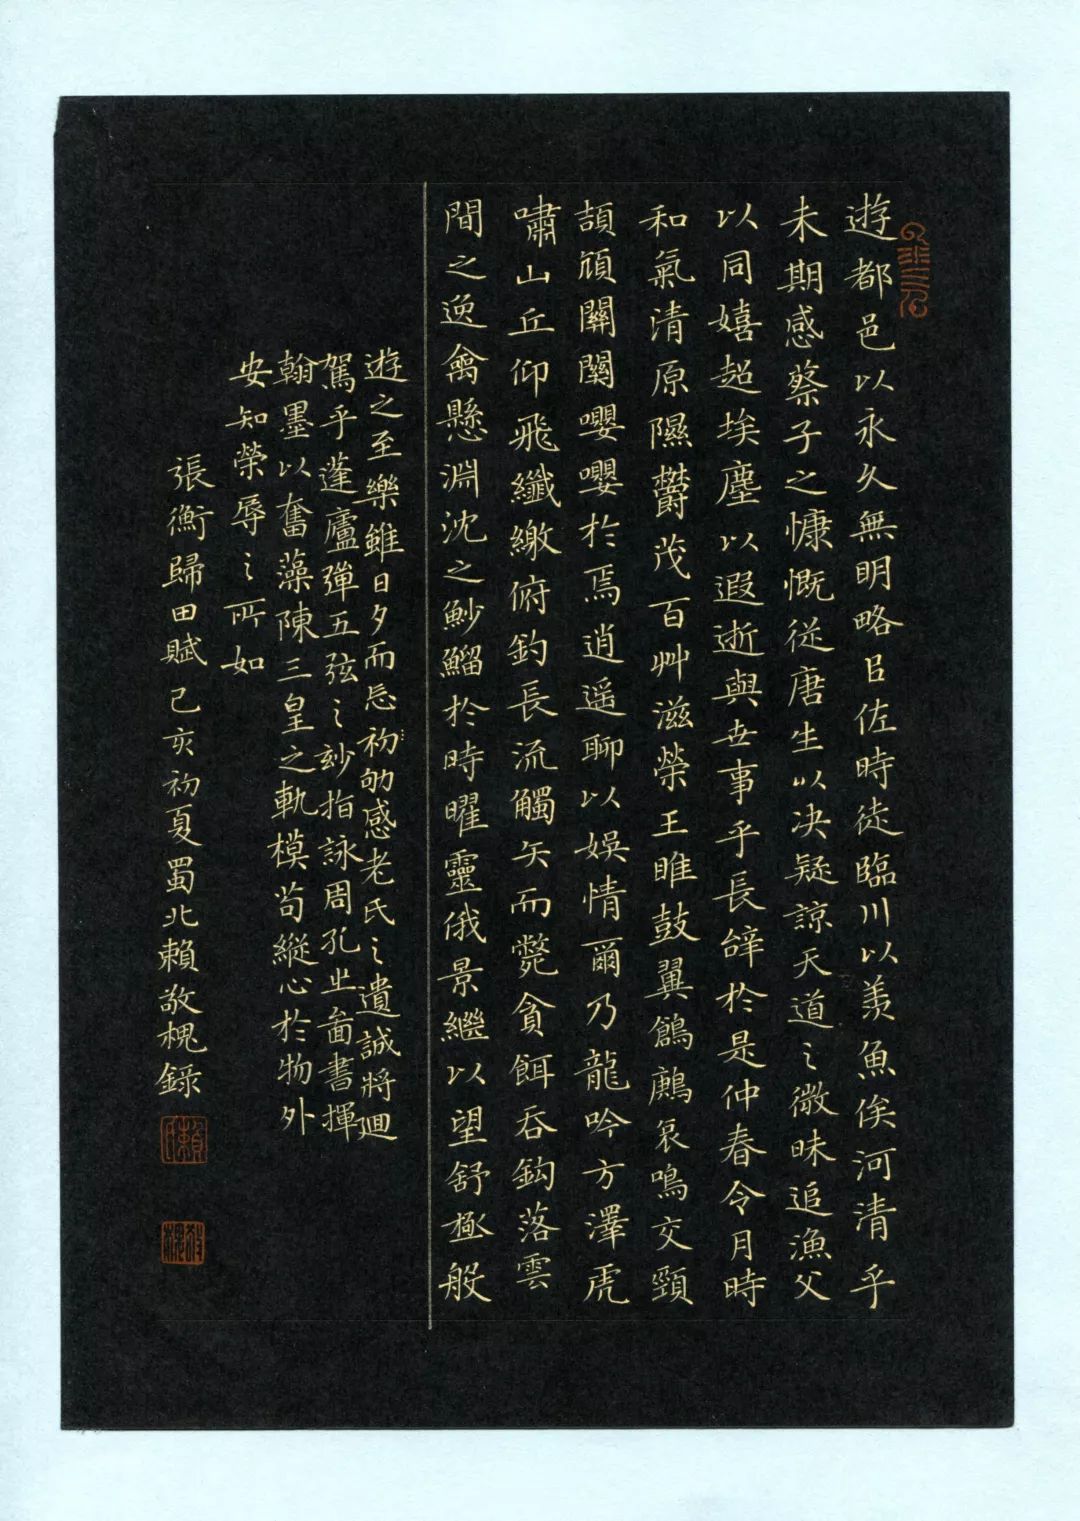 遊都邑以永久無明略㠯佐時徒臨川以羡魚俟河清乎
未期感蔡子之慷慨従唐生以决疑諒天道之微昧追漁父
以同嬉超埃塵以遐逝與世事乎長辝於是仲春令月時
和氣清原隰欝茂百艸滋榮王雎鼓翼鶬鶊哀鳴交頸
頡頏關關嚶嚶於焉逍遥聊以娛情爾乃龍吟方澤虎
嘯山丘仰飛纖繳俯釣長流觸矢而斃貪餌吞鈎落雲
間之逸禽懸淵沈之魦鰡於時曜靈俄景繼以望舒極般
遊之至樂雖日夕而忘初劬感老氏之遺誡將迴
駕乎蓬廬彈五弦之玅指詠周孔㞢啚書揮
翰墨以奮藻陳三皇之軌模苟縱心於物外
安知榮辱之所如
張衡歸田賦己亥初夏蜀北賴敬槐錄